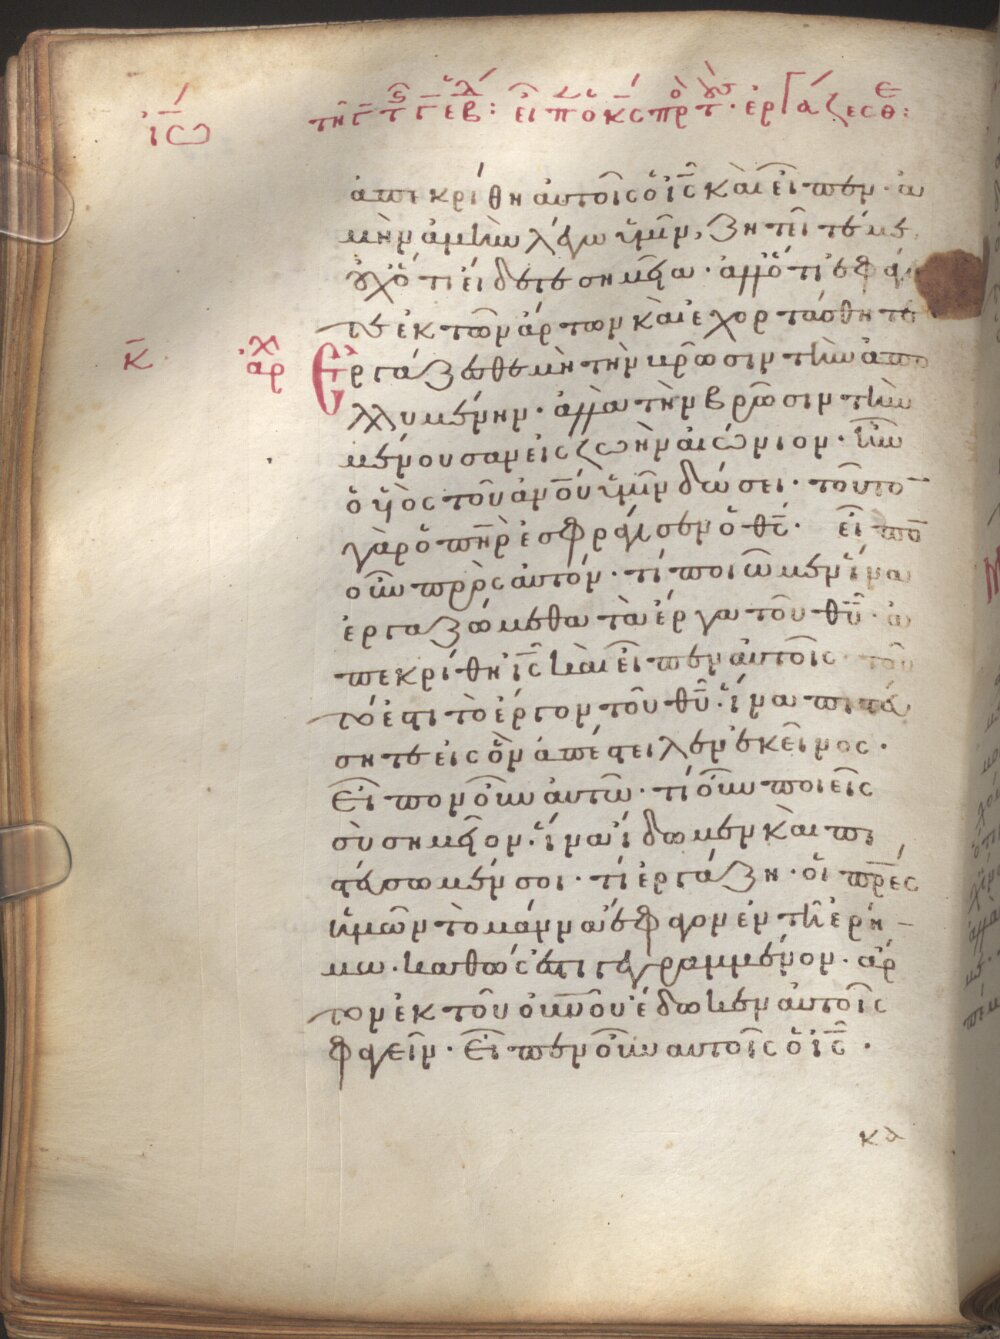 ἰω
τῆ γ τ̅ γ ἑβ: εἶπ ὁ κς πρ τ · ἐργάζεσθε:
ἀπεκρίθη αὐτοῖς ὁ ις̅ καὶ εἶπεν · ἀ
μὴν ἀμὴν λέγω ὑμῖν, ζητεῖτέ με
οὐχ ὅτι εἴδετε σημεῖα · ἀλλ ὅτι ἐφά
τε ἐκ τῶν ἄρτων καὶ ἐχορτάσθητε
κ̅ ἀρχ Ἐργάζεσθε μὴ τὴν βρῶσιν τὴν ἀπο
λλυμένην · ἀλλὰ τὴν βρῶσιν τὴν
μένουσαν εἰς ζωὴν αἰώνιον · ἣν
ὁ υἱὸς τοῦ ανου ὑμῖν δώσει · τοῦτο
γὰρ ὁ πηρ ἐσφράγισεν ὁ θς · εἶπο
οὖν πρὸς αὐτόν · τί ποιῶμεν ἵνα
ἐργαζώμεθα τὰ ἔργα τοῦ θυ · ἀ
πεκρίθη ις καὶ εἶπεν αὐτοῖς · τοῦ
τό ἐστι τὸ ἔργον τοῦ θυ · ἵνα πιστεύ
σητε εἰς ὃν ἀπέστειλεν ἐκεῖνος ·
Εἶπον οὖν αὐτῶ · τί οὖν ποιεῖς
σὺ σημεῖον · ἵνα ἴδωμεν καὶ πι
στεύσωμέν σοι · τί ἐργάζη · οἱ πρες
ἡμῶν τὸ μάννα ἔφαγον ἐν τῆ ἐρή
μω · καθώς ἐστι γεγραμμένον · ἄρ
τον ἐκ τοῦ οὐνοῦ ἔδωκεν αὐτοῖς
φαγεῖν · Εἶπεν οὖν αὐτοῖς ὁ ις ·
κδ